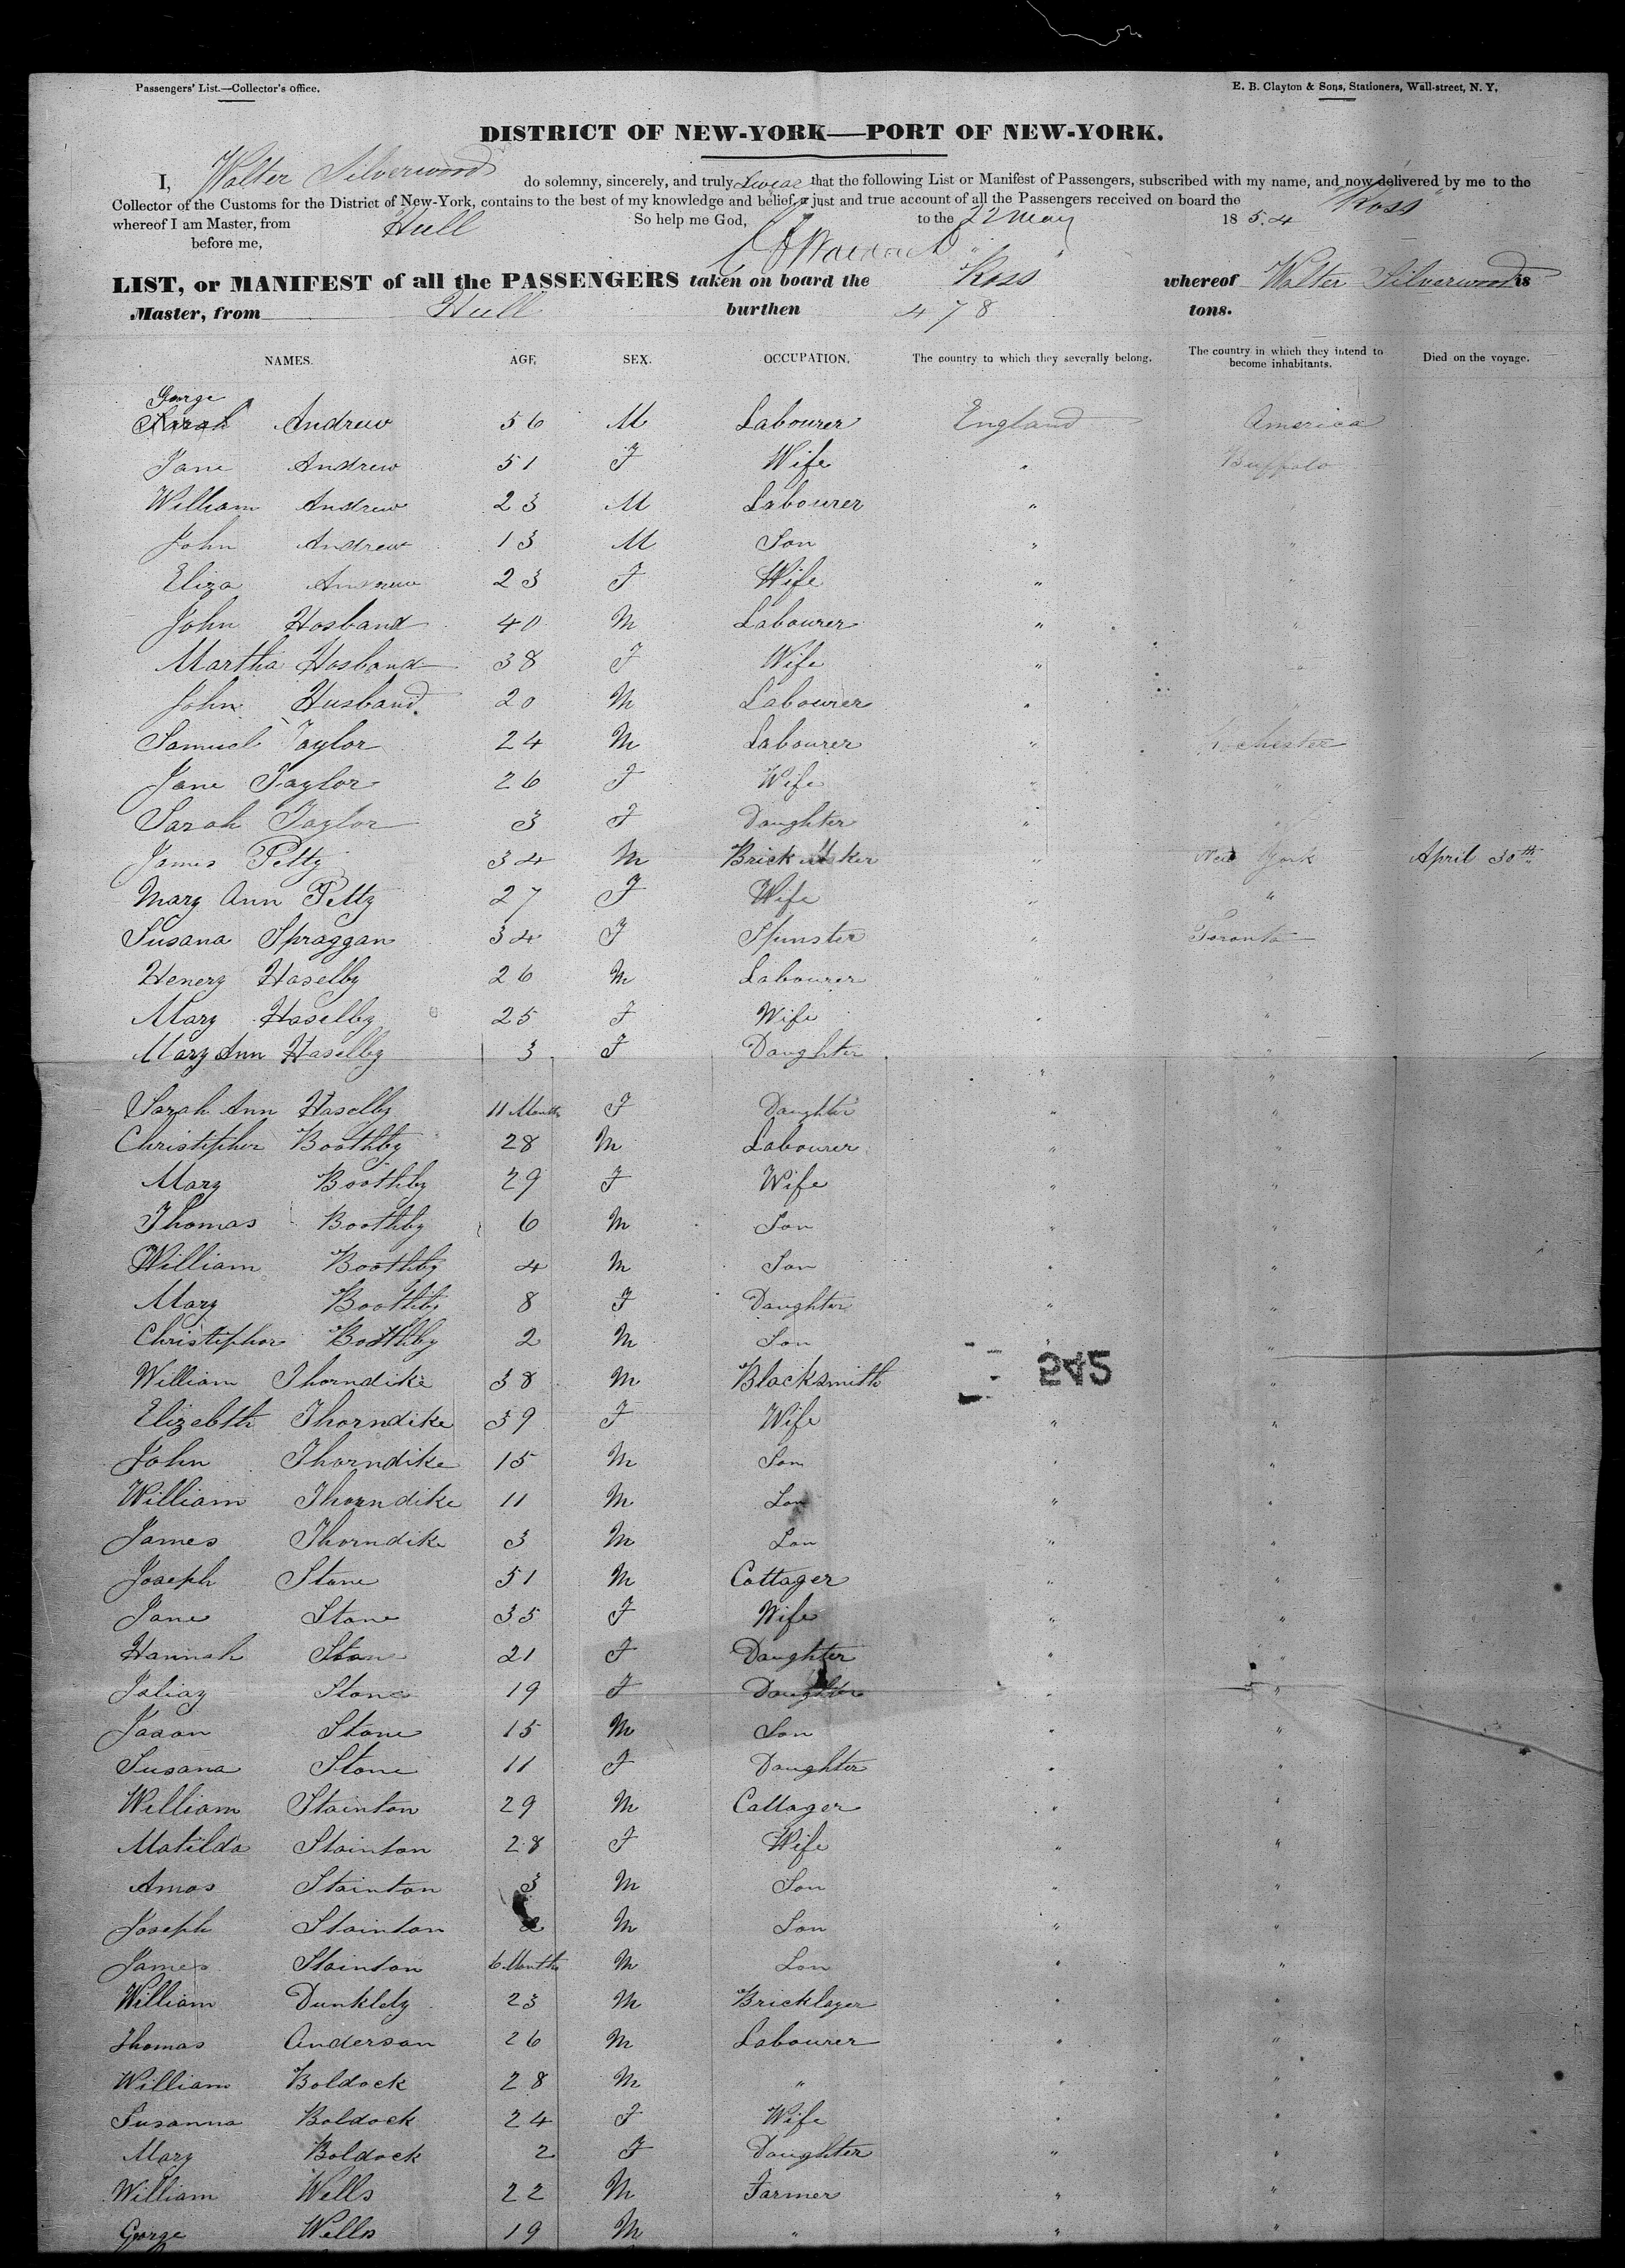 Passengers' List.—Collector's office.
E. B. Clayton & Sons, Stationers, Wall-street, N. Y.
DISTRICT OF NEW-YORK—PORT OF NEW-YORK.
I, Walter Silverwood do solemny, sincerely, and truly swear that the following List or Manifest of Passengers, subscribed with my name, and now delivered by me to the
Collector of the Customs for the District of New-York, contains to the best of my knowledge and belief, a just and true account of all the Passengers received on board the "Ross"
whereof I am Master, from Hull So help me God, to the 22 May 1854
before me,
LIST, or MANIFEST of all the PASSENGERS taken on board the "Ross" whereof Walter Silverwood is
Master, from Hull burthen 478 tons.
NAMES. AGE SEX. OCCUPATION. The country to which they severally belong. The country in which they intend to become inhabitants. Died on the voyage.
George
Sarah Andrew 56 M Labourer England America
Jane Andrew 51 F Wife " Buffalo
William Andrew 23 M Labourer " "
John Andrew 13 M Son " "
Eliza Andrew 23 F Wife " "
John Hosband 40 M Labourer " "
Martha Hosband 38 F Wife " "
John Husband 20 M Labourer " "
Samuel Taylor 24 M Labourer " Rochester
Jane Taylor 26 F Wife " "
Sarah Taylor 3 F Daughter " "
James Peltz 34 M Brick Maker " New York April 30th
Mary Ann Peltz 27 F Wife " "
Susana Spraggan 34 F Spinster " Toronto
Henery Haselby 26 M Labourer " "
Mary Haselby 25 F Wife " "
Mary Ann Haselby 3 F Daughter " "
Sarah Ann Haselby 11 Months F Daughter " "
Christipher Boothby 28 M Labourer " "
Mary Boothby 29 F Wife " "
Thomas Boothby 6 M Son " "
William Boothby 4 M Son " "
Mary Boothby 8 F Daughter " "
Christiphor Boothby 2 M Son " "
245
William Thorndike 38 M Blacksmith "
Elizabth Thorndike 39 F Wife " "
John Thorndike 15 M Son " "
William Thorndike 11 M Son " "
James Thorndike 3 M Son " "
Joseph Stone 51 M Cottager " "
Jane Stone 35 F Wife " "
Hannah Stone 21 F Daughter " "
Stone 19 F Daughter " "
Jason Stone 15 M Son " "
Susana Stone 11 F Daughter " "
William Stainton 29 M Cottager " "
Matilda Stainton 28 F Wife " "
Amos Stainton 3 M Son " "
Joseph Stainton 2 M Son " "
James Stainton 6 Months M Son " "
William Dunkley 23 M Bricklayer " "
Thomas Anderson 26 M Labourer " "
William Boldock 28 M " " "
Susanna Boldock 24 F Wife " "
Mary Boldock 2 F Daughter " "
William Wells 22 M Farmer " "
George Wells 19 M " " "